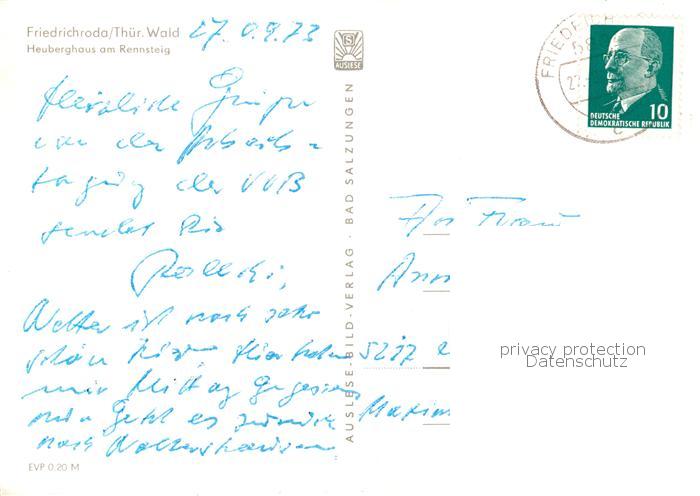 Friedrichroda/Thür. Wald
Heuberghaus am Rennsteig
27.09.73
AUSLESE
Herzliche Grüße
von der Arbeits-
tagung der VVB
sendet Dir
Wetter ist noch sehr
schön hier. Hier haben
wir Mittag gegessen
nun geht es zurück
nach
EVP 0.20 M
AUSLESE-BILD-VERLAG · BAD SALZUNGEN
FRIEDRICH
DEUTSCHE
DEMOKRATISCHE REPUBLIK
10
Frau
Ann
privacy protection
Datenschutz